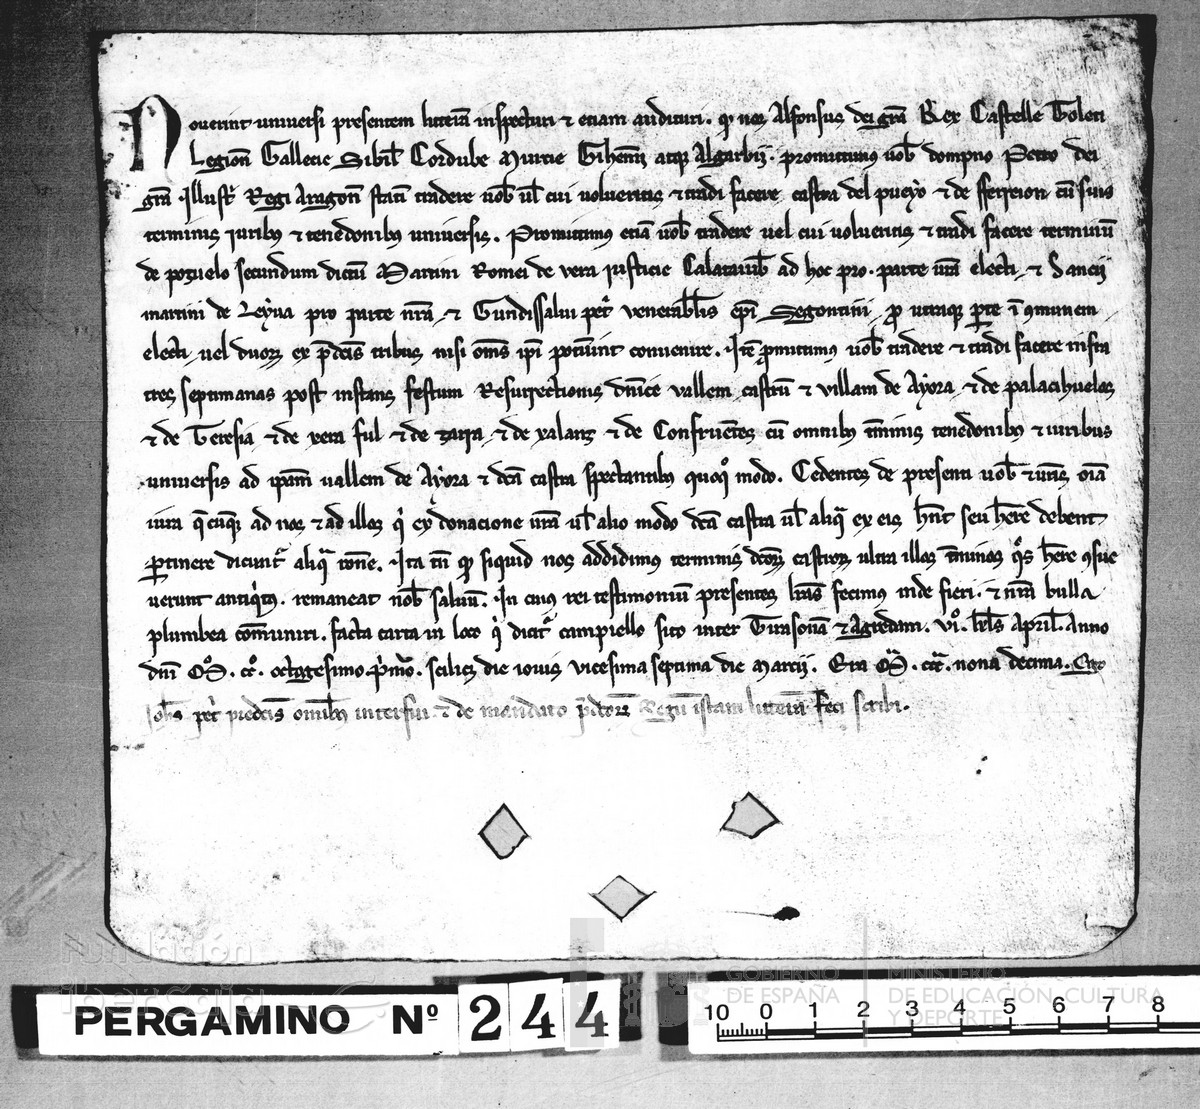 Noverint universi presentem litteram inspecturi et etiam audituri. qd nos Alfonsus dei gra Rex Castelle Toleti
Legion Gallecie Sibil Cordube Murcie Gihenn atqz Algarbii. promittimus vob dompno Petro dei
gra Illustr Regi Aragon stati tradere vob vl cui volueritis et tradi facere castra del pueyo et de fferreion cu suis
terminis iuribus et tenedonibus universis. Promittimus etia vob tradere vel cui volueritis et tradi facere terminu
de pozuelo secundum dictu Martini Romei de vera iusticie Calataiub ad hoc pro parte vra electi et Sancii
martini de Leyva pro parte nra et Gundissalvi petr venerabilis epi Segontini pro utraqz parte i comunem
electi vel duorz ex pdcis tribus nisi oms ipi potuint convenire. Ite pmittimus vob tradere et tradi facere infra
tres septimanas post instans festum Resurrectionis dnice vallem castru et villam de Ayora et de palacihuelos
et de Teresia et de xera ful et de zarra et de xalanz et de Confruetes cu omnibus tminis tenedonibus et iuribus
universis ad ipam vallem de Ayora et dca castra spectantibus quoqo modo. Cedentes de presenti vob et vris oia
iura qecuqz ad nos et ad illos qi ex donacione nra vl alio modo dca castra vl aliqa ex eis hnt seu here debent
ptinere dicunt aliqa rone. Ita tn qd siquid nos addidimus terminis dcorz castrorz ultra illos tminos qos here consue
verunt antiqitus. remaneat nob salvu. In cuius rei testimoniu presentes lras fecimus inde fieri. et nra bulla
plumbea comuniri. facta carta in loco qi dicitr campiello sito inter Tirasona et Agredam. vi. kls April. Anno
dni Mo. cco. octogesimo pimo. scilicz die iovis vicesima septima die Marcii. Era Ma. ccca. nona decima. Ego
Johs petr pdcis omibus interfui et de mandato pdcorz Regu istam litteram feci scribi.
PERGAMINO Nº 244
10 0 1 2 3 4 5 6 7 8
Fundación
iberCaja
GOBIERNO DE ESPAÑA
MINISTERIO DE EDUCACIÓN, CULTURA Y DEPORTE